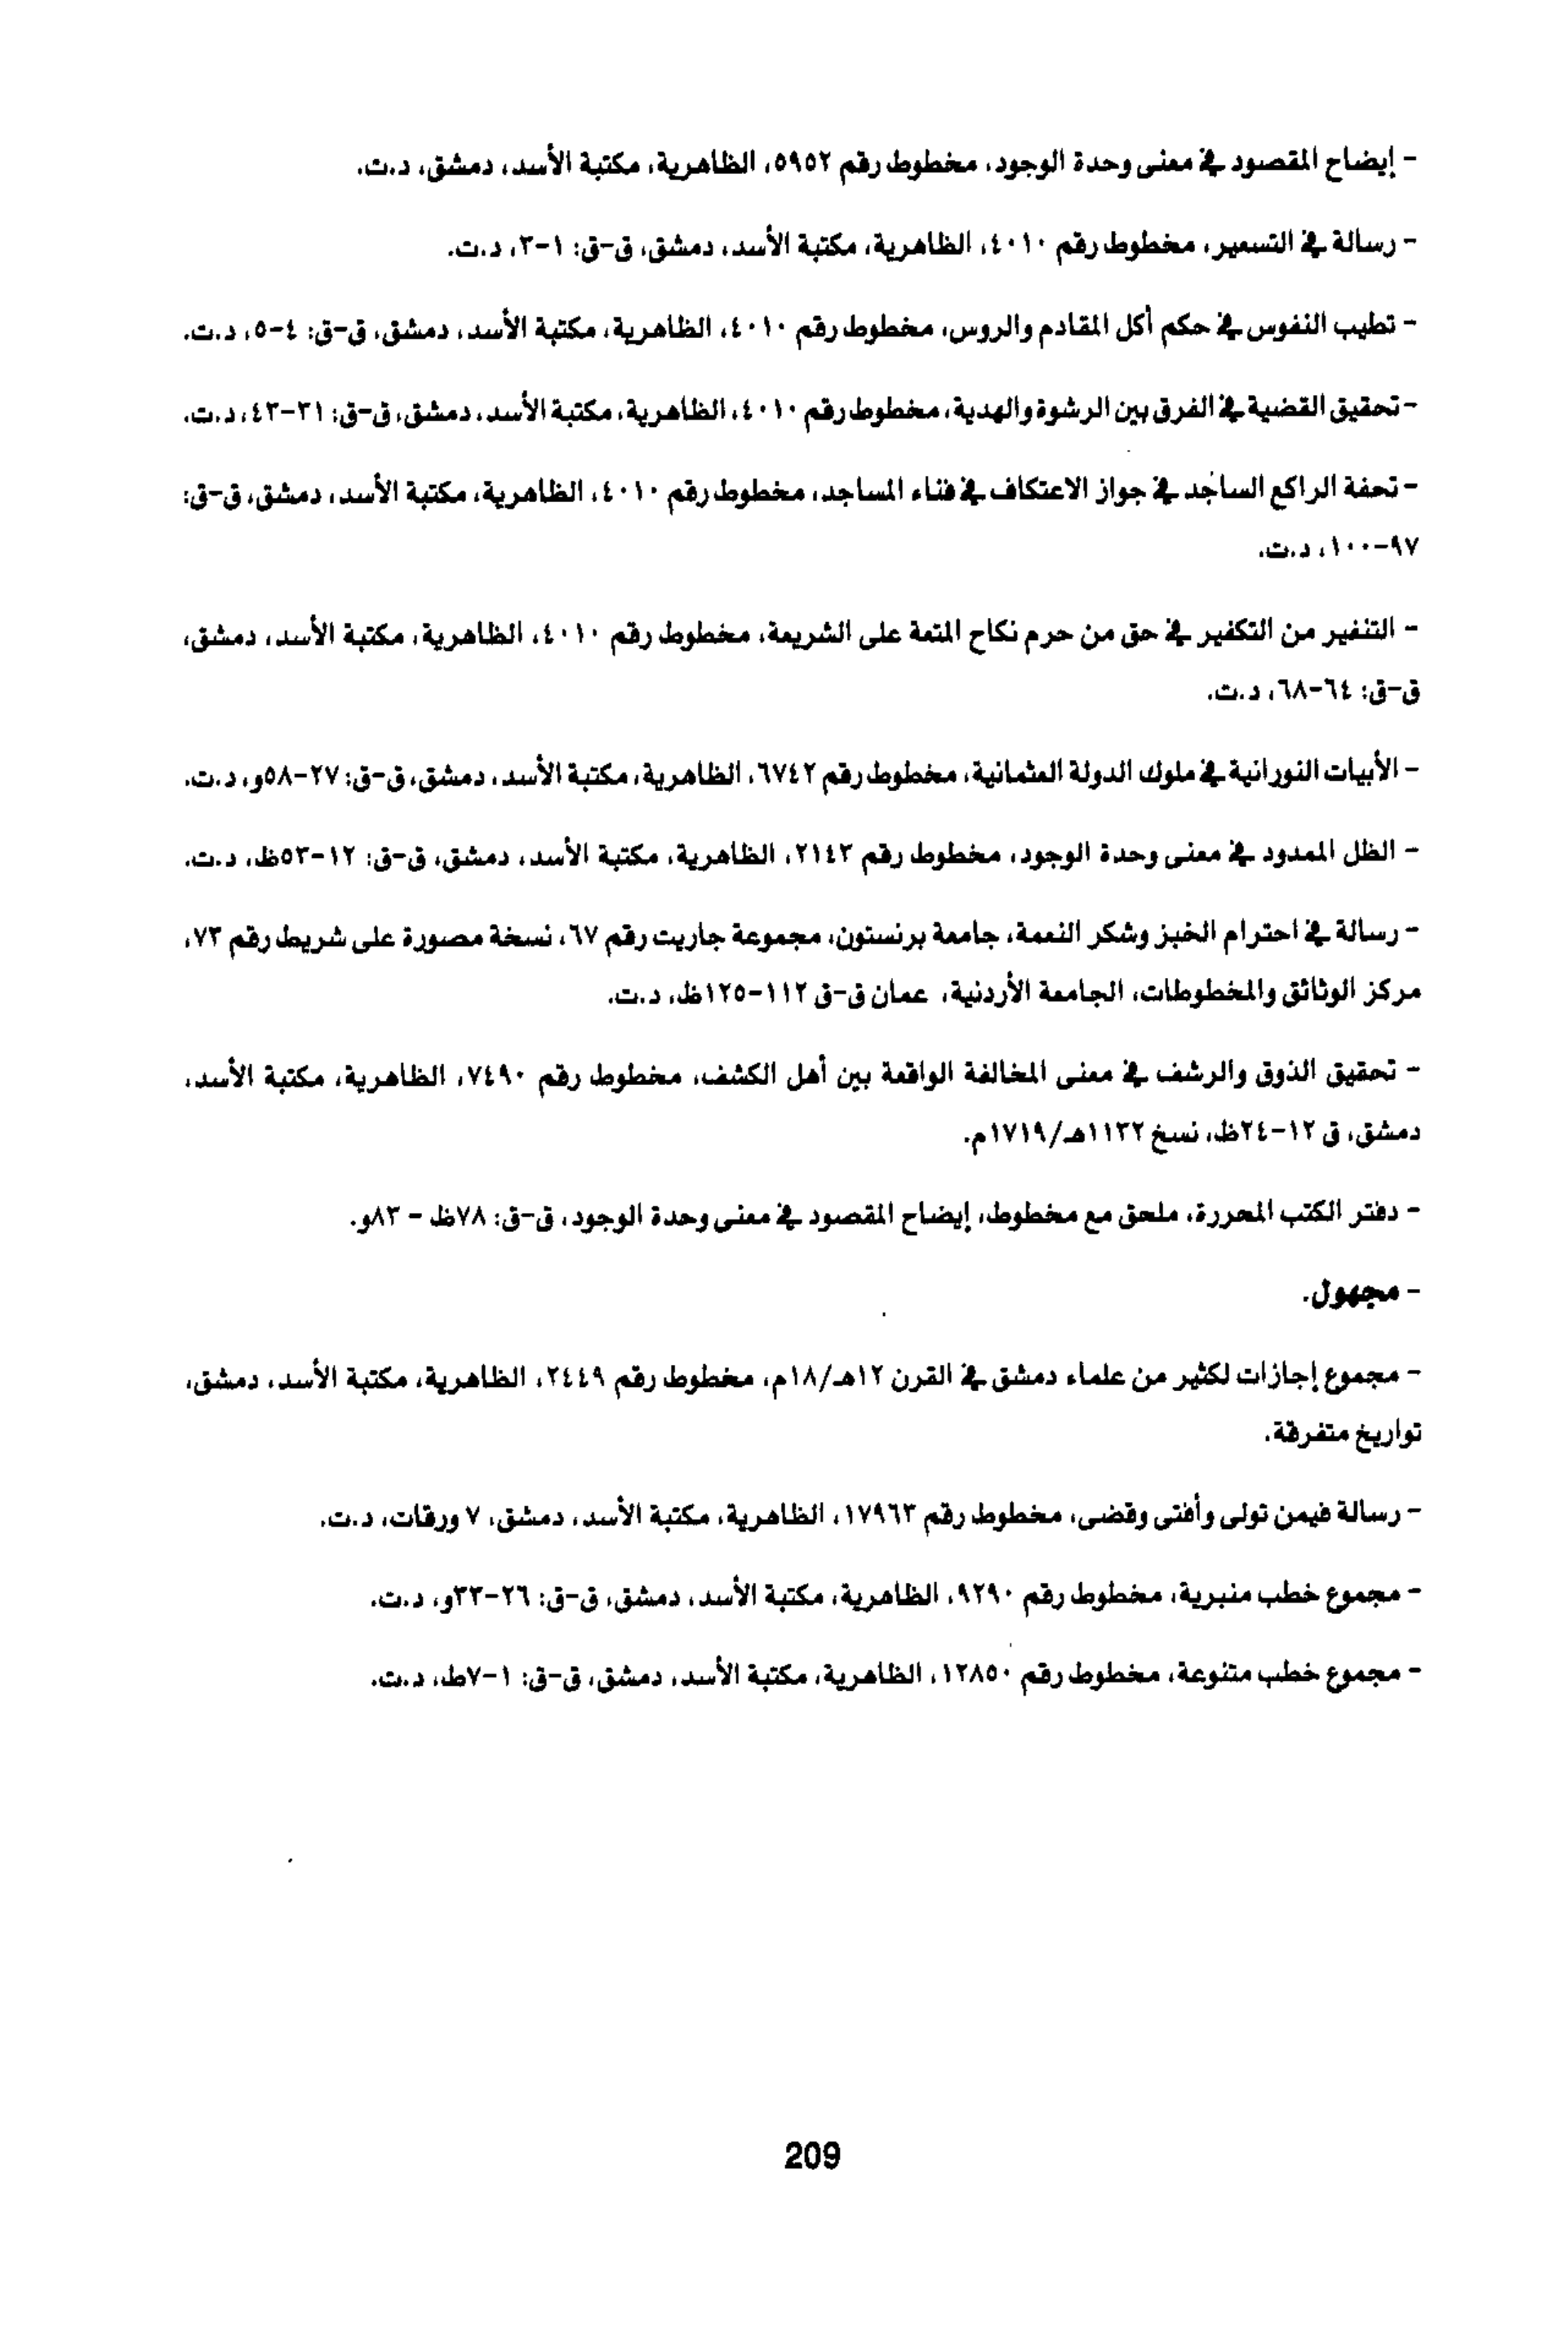 - إيضاح المقصود في معنى وحدة الوجود، مخطوط رقم ٥٩٥٢، الظاهرية، مكتبة الأسد، دمشق، د.ت.
- رسالة في التسعير، مخطوط رقم ٤٠١٠، الظاهرية، مكتبة الأسد، دمشق، ق-ق: ١-٣، د.ت.
- تطيب النفوس في حكم أكل المقادم والروس، مخطوط رقم ٤٠١٠، الظاهرية، مكتبة الأسد، دمشق، ق-ق: ٤-٥، د.ت.
- تحقيق القضية في الفرق بين الرشوة والهدية، مخطوط رقم ٤٠١٠، الظاهرية، مكتبة الأسد، دمشق، ق-ق: ٣١-٤٣، د.ت.
- تحفة الراكع الساجد في جواز الاعتكاف في فناء المساجد، مخطوط رقم ٤٠١٠، الظاهرية، مكتبة الأسد، دمشق، ق-ق:
٩٧-١٠٠، د.ت.
- التنفير من التكفير في حق من حرم نكاح المتعة على الشريعة، مخطوط رقم ٤٠١٠، الظاهرية، مكتبة الأسد، دمشق،
ق-ق: ٦٤-٦٨، د.ت.
- الأبيات النورانية في ملوك الدولة العثمانية، مخطوط رقم ٦٧٤٢، الظاهرية، مكتبة الأسد، دمشق، ق-ق: ٢٧-٥٨و، د.ت.
- الظل الممدود في معنى وحدة الوجود، مخطوط رقم ٢١٤٣، الظاهرية، مكتبة الأسد، دمشق، ق-ق: ١٢-٥٣ظ، د.ت.
- رسالة في احترام الخبز وشكر النعمة، جامعة برنستون، مجموعة جاريت رقم ٦٧، نسخة مصورة على شريط رقم ٧٣،
مركز الوثائق والمخطوطات، الجامعة الأردنية، عمان ق-ق ١١٢-١٢٥ظ، د.ت.
- تحقيق الذوق والرشف في معنى المخالفة الواقعة بين أهل الكشف، مخطوط رقم ٧٤٩٠، الظاهرية، مكتبة الأسد،
دمشق، ق ١٢-٢٤ظ، نسخ ١١٣٢هـ/١٧١٩م.
- دفتر الكتب المحررة، ملحق مع مخطوط، إيضاح المقصود في معنى وحدة الوجود، ق-ق: ٧٨ظ - ٨٣و.
- مجهول.
- مجموع إجازات لكثير من علماء دمشق في القرن ١٢هـ/١٨م، مخطوط رقم ٢٤٤٩، الظاهرية، مكتبة الأسد، دمشق،
تواريخ متفرقة.
- رسالة فيمن تولى وأفتى وقضى، مخطوط رقم ١٧٩٦٣، الظاهرية، مكتبة الأسد، دمشق، ٧ ورقات، د.ت.
- مجموع خطب منبرية، مخطوط رقم ٩٢٩٠، الظاهرية، مكتبة الأسد، دمشق، ق-ق: ٢٦-٣٣و، د.ت.
- مجموع خطب متنوعة، مخطوط رقم ١٢٨٥٠، الظاهرية، مكتبة الأسد، دمشق، ق-ق: ١-٧ط، د.ت.
209